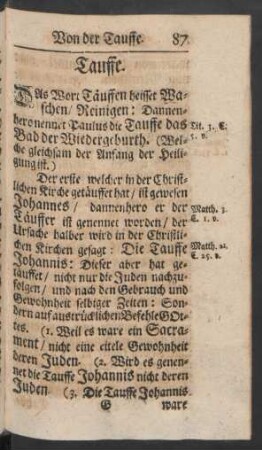 Von der Tauffe. 87.
Tauffe.
DAs Wort Täuffen heisset Wa-
schen/ Reinigen: Dannen-
hero nennet Paulus die Tauffe das
Bad der Wiedergeburth. (Wel-
che gleichsam der Anfang der Heili-
gung ist.)
Tit. 3. C:
5. v.
Der erste welcher in der Christ-
lichen Kirche getäuffet hat/ ist gewesen
Johannes/ dannenhero er der
Täuffer ist genennet worden/ der
Ursache halber wird in der Christli-
chen Kirchen gesagt: Die Tauffe
Johannis: Dieser aber hat ge-
täuffet/ nicht nur die Juden nachzu-
folgen/ und nach den Gebrauch und
Gewohnheit selbiger Zeiten: Son-
dern auf austrücklichen Befehle GOt-
tes. (1. Weil es ware ein Sacra-
ment/ nicht eine eitele Gewohnheit
deren Juden. (2. Wird es genen-
net die Tauffe Johannis nicht deren
Juden. (3. Die Tauffe Johannis
Matth. 3.
C. 1. v.
Matth. 21.
C. 25. v.
G ware